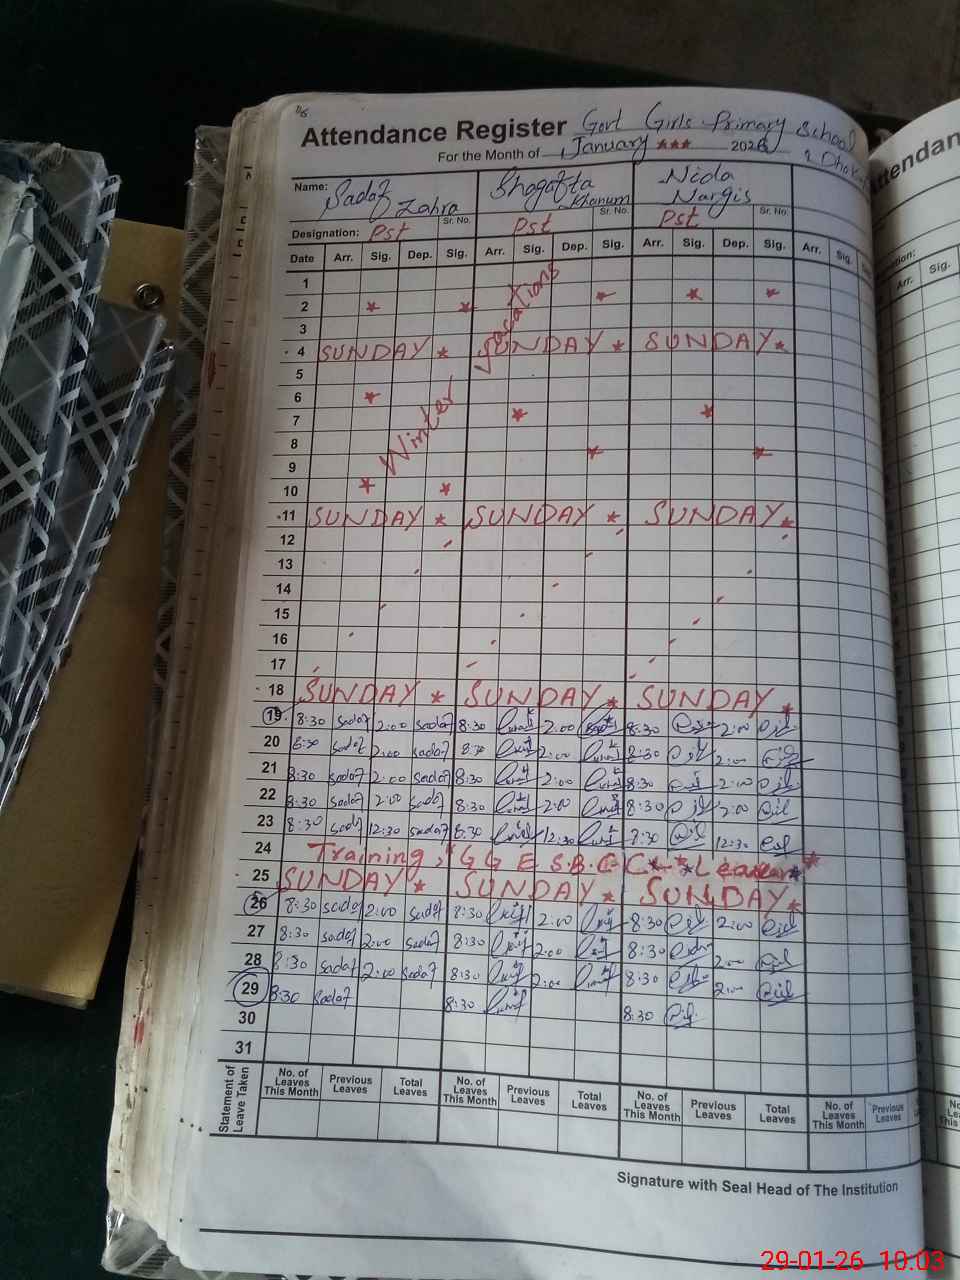 Attendance Register Govt Girls Primary School
For the Month of January *** 2026
Name: Sadaf Zahra Shagafta Khanum Nida Nargis
Sr. No. Sr. No. Sr. No.
Designation: Pst Pst Pst
Date Arr. Sig. Dep. Sig. Arr. Sig. Dep. Sig. Arr. Sig. Dep. Sig. Arr. Sig.
1
2 * * * * *
3
4 SUNDAY * SUNDAY * SUNDAY *
5
6 *
7 * *
8
9 * *
10 * *
Winter Vacations
11 SUNDAY * SUNDAY * SUNDAY *
12
13
14
15
16
17
18 SUNDAY * SUNDAY * SUNDAY *
19 8:30 Sadaf 2:00 Sadaf 8:30 2:00 8:30 2:00
20 8:30 Sadaf 2:00 Sadaf 8:30 2:00 8:30 2:00
21 8:30 Sadaf 2:00 Sadaf 8:30 2:00 8:30 2:00
22 8:30 Sadaf 2:00 Sadaf 8:30 2:00 8:30 2:00
23 8:30 Sadaf 12:30 Sadaf 8:30 12:30 12:30
24 Training, G G E S
25 SUNDAY * SUNDAY * SUNDAY *
26 8:30 Sadaf 2:00 Sadaf 8:30 2:00 8:30 2:00
27 8:30 Sadaf 2:00 Sadaf 8:30 2:00 8:30 2:00
28 8:30 Sadaf 2:00 Sadaf 8:30 2:00 8:30 2:00
29 8:30 Sadaf 8:30 8:30
30
31
Statement of Leave Taken
No. of Leaves This Month Previous Leaves Total Leaves No. of Leaves This Month Previous Leaves Total Leaves No. of Leaves This Month Previous Leaves Total Leaves No. of Leaves This Month Previous Leaves
Signature with Seal Head of The Institution
Attendan
Arr. Sig.
29-01-26 10:03